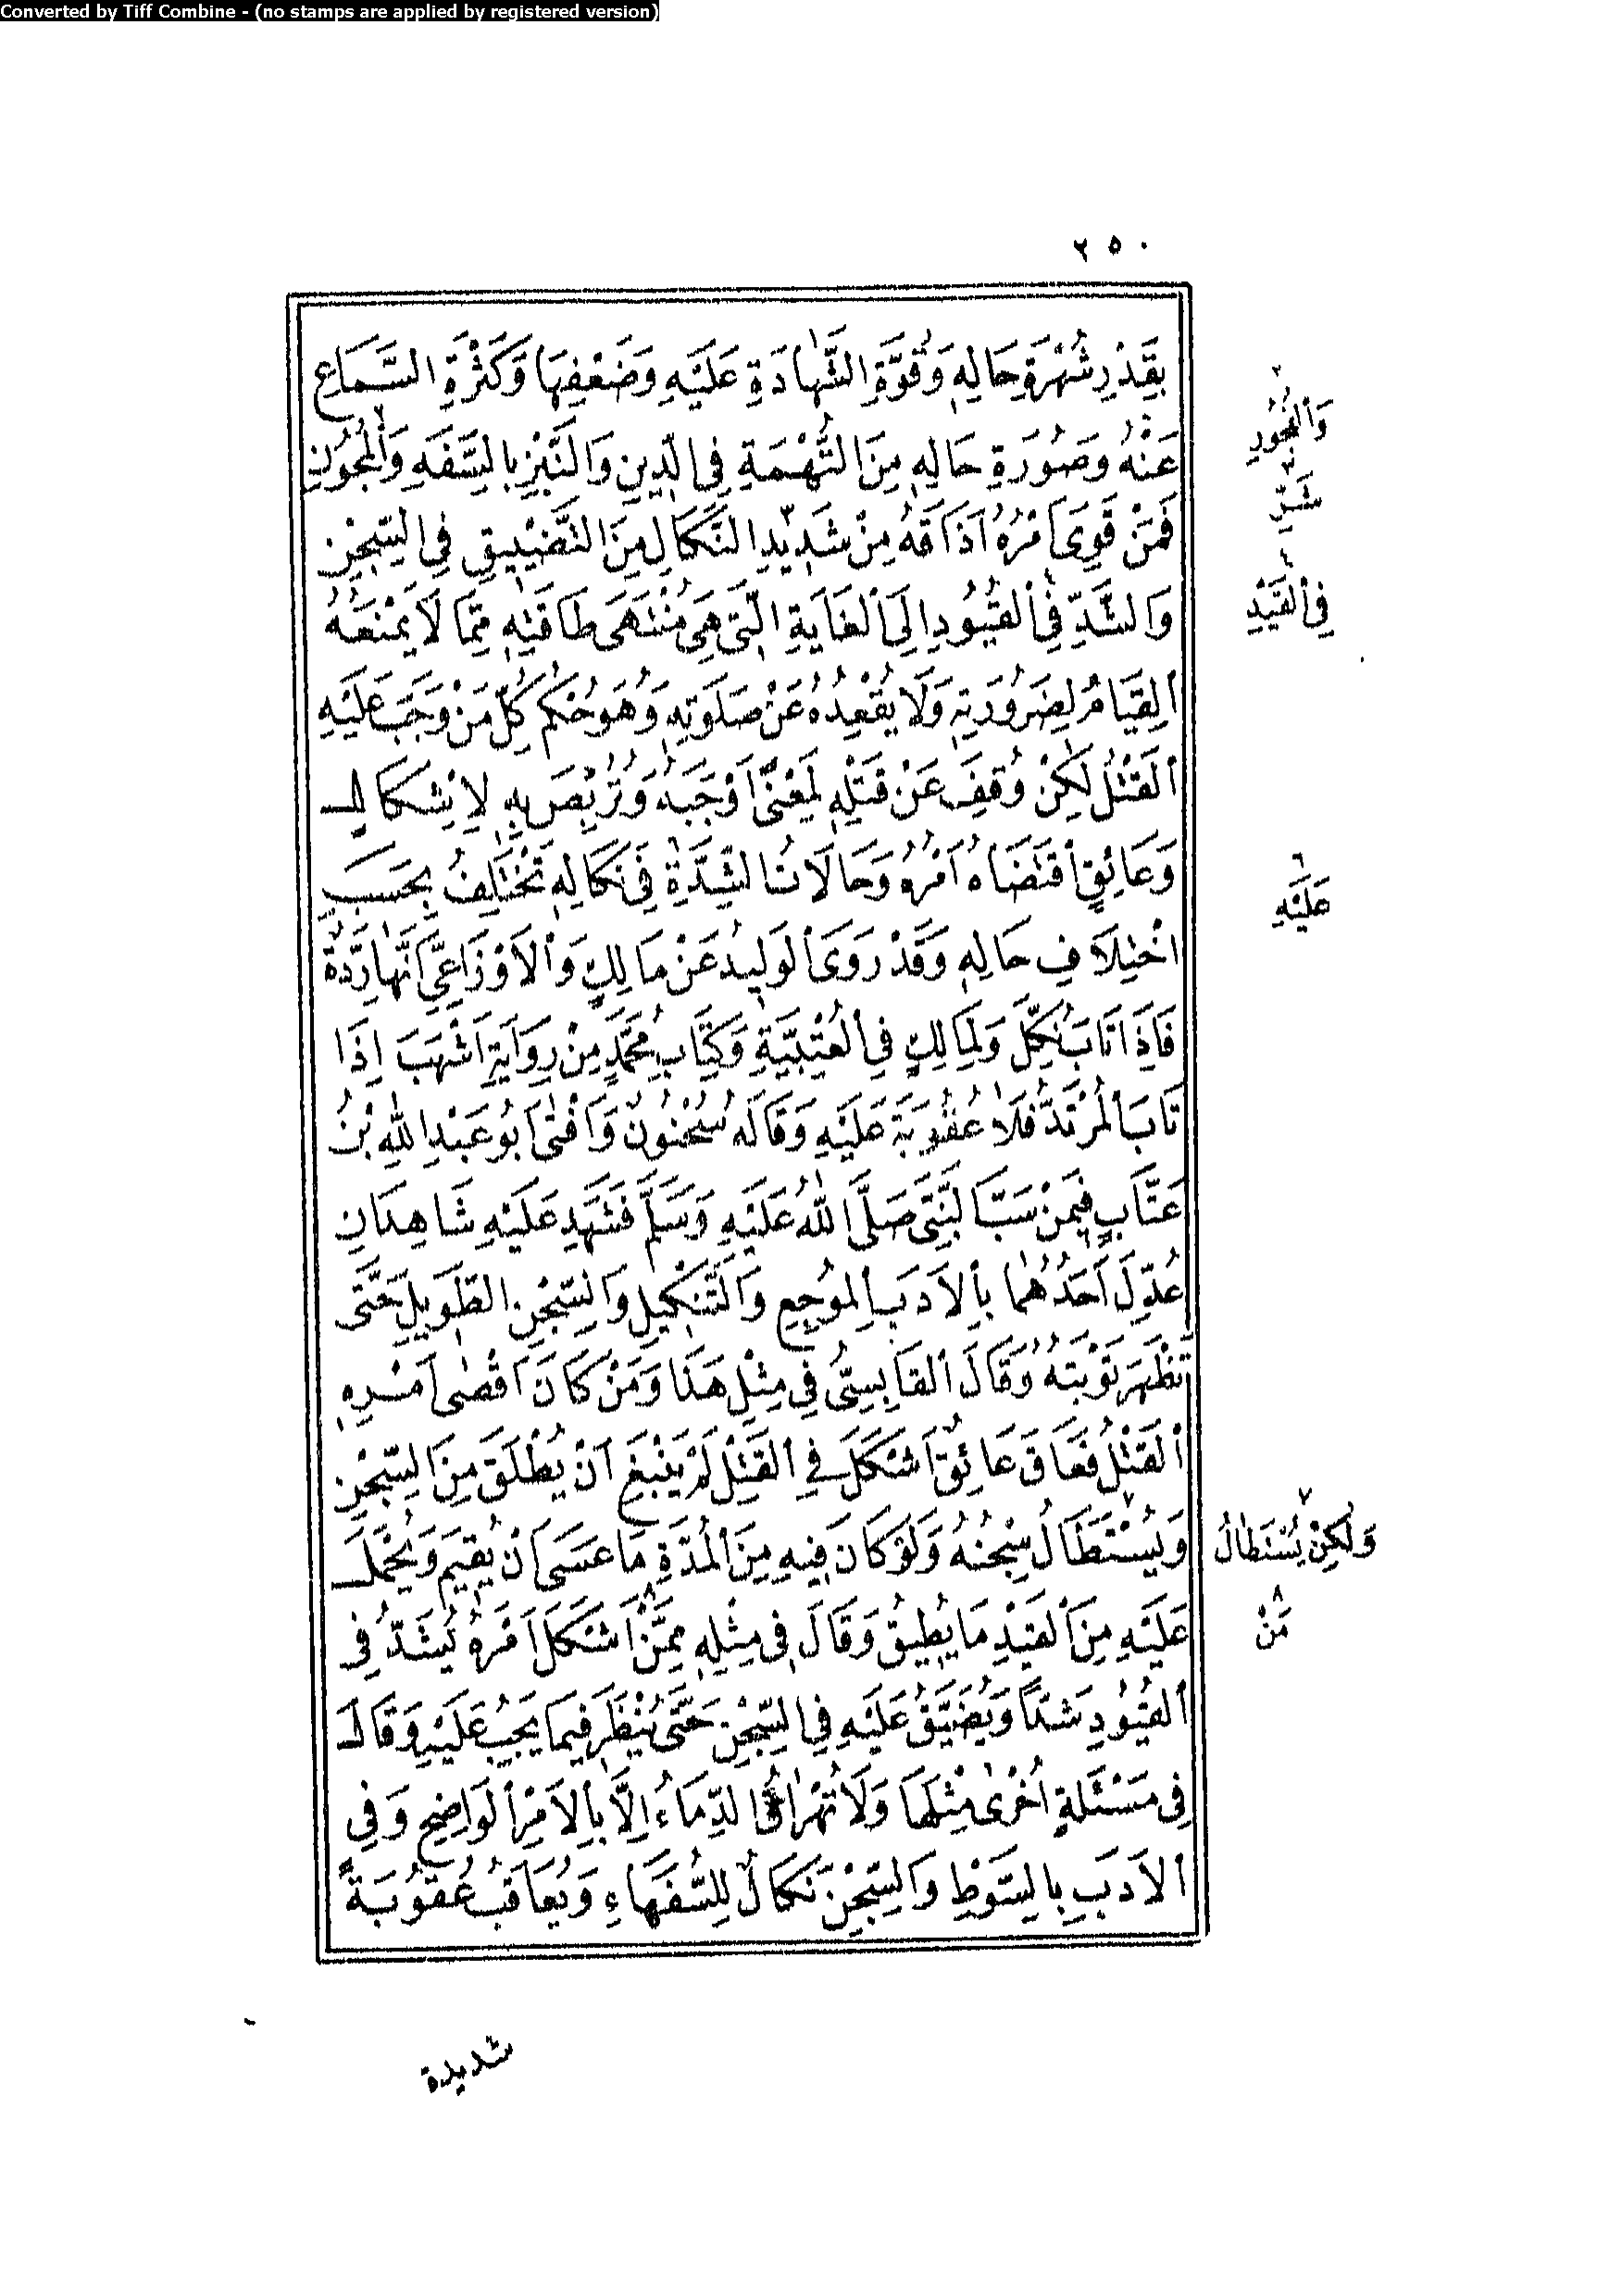 Converted by Tiff Combine - (no stamps are applied by registered version)
٢٥٠
بِقَدْرِ شُهْرَةِ حَالِهِ وَقُوَّةِ الشَّهَادَةِ عَلَيْهِ وَضَعْفِهَا وَكَثْرَةِ السَّمَاعِ
عَنْهُ وَصُورَةِ حَالِهِ مِنَ التُّهَمَةِ فِي الدِّينِ وَالنَّبْزِ بِالسَّفَهِ وَالْمُجُونِ
فَمَنْ قَوِيَ أَمْرُهُ أَذَاقَهُ مِنْ شَدِيدِ النَّكَالِ مِنَ التَّضْيِيقِ فِي السِّجْنِ
وَالشَّدِّ فِي الْقُيُودِ إِلَى الْغَايَةِ الَّتِي هِيَ مُنْتَهَى طَاقَتِهِ مِمَّا لَا يَمْنَعُهُ
الْقِيَامُ لِضَرُورَتِهِ وَلَا يُقْعِدُهُ عَنْ صَلَوتِهِ وَهُوَ حُكْمُ كُلِّ مَنْ وَجَبَ عَلَيْهِ
الْقَتْلُ لَكِنْ وُقِفَ عَنْ قَتْلِهِ لِمَعْنًى أَوْجَبَهُ وَتُرُبِّصَ بِهِ لِإِشْكَالٍ
وَعَائِقٍ اقْتَضَاهُ أَمْرُهُ وَحَالَاتُ الشِّدَّةِ فِي نَكَالِهِ تَخْتَلِفُ بِحَسَبِ
اخْتِلَافِ حَالِهِ وَقَدْ رَوَى الْوَلِيدُ عَنْ مَالِكٍ وَالْأَوْزَاعِيِّ أَنَّهَا رِدَّةٌ
فَإِذَا تَابَ نُكِّلَ وَلِمَالِكٍ فِي الْعُتْبِيَّةِ وَكِتَابِ مُحَمَّدٍ مِنْ رِوَايَةِ أَشْهَبَ إِذَا
تَابَ الْمُرْتَدُّ فَلَا عُقُوبَةَ عَلَيْهِ وَقَالَهُ سُحْنُونٌ وَأَفْتَى أَبُو عَبْدِ اللهِ بْنُ
عَتَّابٍ فِيمَنْ سَبَّ النَّبِيَّ صَلَّى اللهُ عَلَيْهِ وَسَلَّمَ فَشَهِدَ عَلَيْهِ شَاهِدَانِ
عُدِّلَ أَحَدُهُمَا بِالْأَدَبِ الْمُوجِعِ وَالتَّنْكِيلِ وَالسِّجْنِ الطَّوِيلِ حَتَّى
تَظْهَرَ تَوْبَتُهُ وَقَالَ الْقَابِسِيُّ فِي مِثْلِ هَذَا وَمَنْ كَانَ أَقْصَى أَمْرِهِ
الْقَتْلُ فَعَاقَ عَائِقٌ أَشْكَلَ فِي الْقَتْلِ لَمْ يَنْبَغِ أَنْ يُطْلَقَ مِنَ السِّجْنِ
وَيُسْتَطَالُ سِجْنُهُ وَلَوْ كَانَ فِيهِ مِنَ الْمُدَّةِ مَا عَسَى أَنْ يُقِيمَ وَيُحْمَلَ
عَلَيْهِ مِنَ الْقَيْدِ مَا يُطِيقُ وَقَالَ فِي مِثْلِهِ مِمَّنْ أَشْكَلَ أَمْرُهُ يُشَدُّ فِي
الْقُيُودِ شَدًّا وَيُضَيَّقُ عَلَيْهِ فِي السِّجْنِ حَتَّى يُنْظَرَ فِيمَا يَجِبُ عَلَيْهِ وَقَالَ
فِي مَسْئَلَةٍ أُخْرَى مِثْلِهَا وَلَا تُهْرَاقُ الدِّمَاءُ إِلَّا بِالْأَمْرِ الْوَاضِحِ وَفِي
الْأَدَبِ بِالسَّوْطِ وَالسِّجْنِ نَكَالٌ لِلسُّفَهَاءِ وَيُعَاقَبُ عُقُوبَةً
شديدة
٢
وَالْفُجُورِ
٣
شَرِّ
٤
فِي الْقَيْدِ
٦
عَلَيْهِ
٧
وَلَكِنْ يُسْتَطَالُ
٨
مَنْ